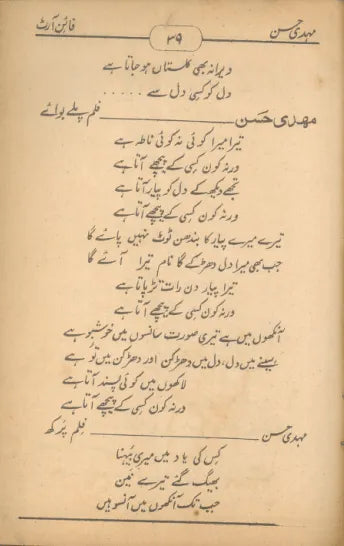 مہدی حسن ۳۹ فائن آرٹ
ویرانہ بھی گلستاں ہو جاتا ہے
دل کو کسی دل سے ......
مہدی حسن فلم پلے بوائے
تیرا میرا کوئی نہ کوئی ناطہ ہے
ورنہ کون کسی کے پیچھے آتا ہے
تجھے دیکھ کے دل کو پیار آتا ہے
ورنہ کون کسی کے پیچھے آتا ہے
تیرے میرے پیار کا بندھن ٹوٹ نہیں پائے گا
جب بھی میرا دل دھڑکے گا نام تیرا آئے گا
تیرا پیار دن رات تڑپاتا ہے
ورنہ کون کسی کے پیچھے آتا ہے
آنکھوں میں ہے تیری صورت سانسوں میں خوشبو ہے
سینے میں دل، دل میں دھڑکن اور دھڑکن میں تو ہے
لاکھوں میں کوئی پسند آتا ہے
ورنہ کون کسی کے پیچھے آتا ہے
مہدی حسن فلم پرکھ
کس کی یاد میں میری بہنا
بھیگ گئے تیرے نین
جب تک آنکھوں میں آنسو ہیں